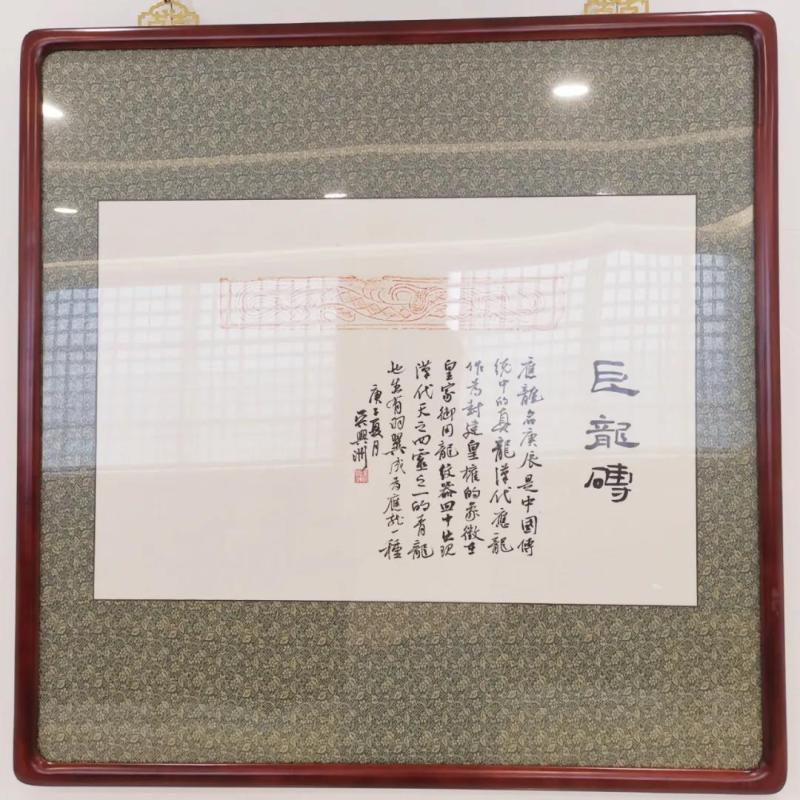 巨龍磚
應龍名庚辰是中國傳
統中的真龍漢代應龍
作為封建皇權的象徵在
皇家御用龍紋器皿中出現
漢代天之四靈之一的青龍
也生有羽翼成為應龍一種
庚子夏月
吴興洲